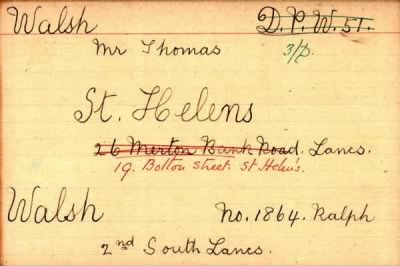 Walsh D. P. W. 51.
Mr Thomas 3/p.
St. Helens
26 Merton Bank Road. Lancs.
19. Bolton Street. St Helen's.
Walsh No. 1864. Ralph
2nd South Lancs.